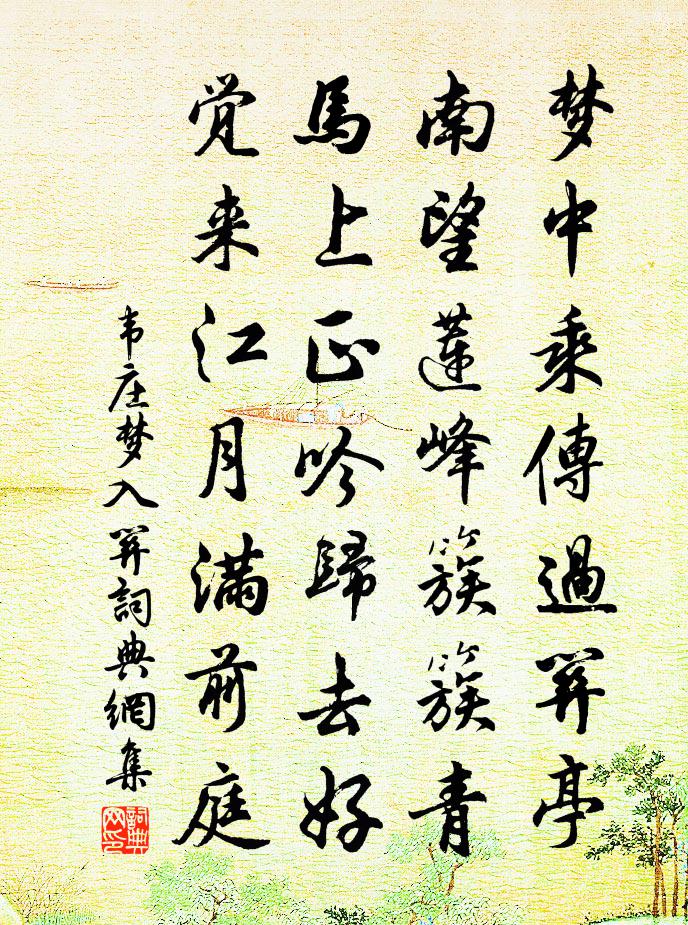 梦中乘傳過関亭
南望蓮峰簇簇青
馬上正吟歸去好
覚来江月满前庭
韦庄梦入関詞典網集
詞典网印